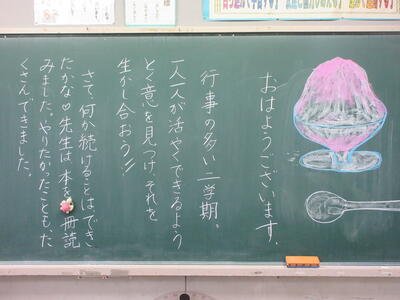 おはようございます。
行事の多い二学期。
一人一人が活やくできるよう
とく意を見つけ、それを
生かし合おう!!
さて、何か続けることはでき
たかな♡先生は、本を 冊読
みました。やりたかったことも、た
くさんできました。